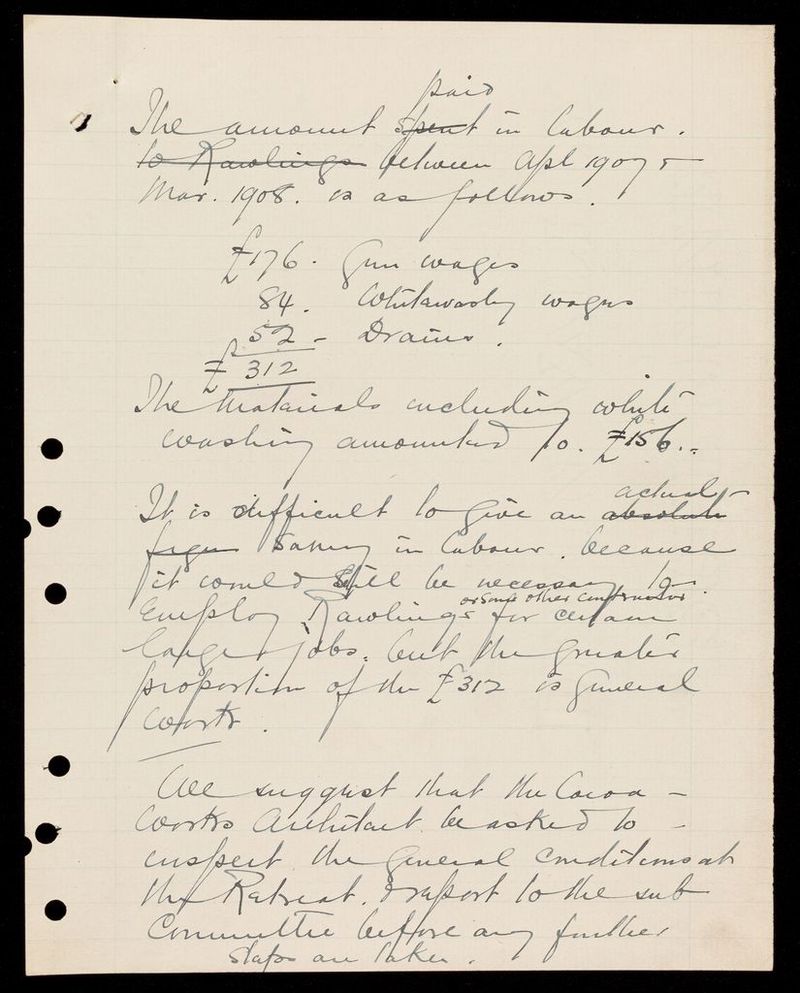 paid
The amount spent in labour.
to Rawlings between Apl 1907 &
Mar. 1908. is as follows.
£176. Gen wages
84. Whitewashg wages
52 - Drains.
£312
The Materials including white
washing amounted to. £156.
actual
It is difficult to give an absolute
figure saving in labour. because
it would still be necessary to
or some other contractor.
Employ Rawlings for certain
large jobs. but the greater
proportion of the £312 is General
works.
We suggest that the Cocoa -
works Architect be asked to -
inspect the General conditions at
the Retreat. & report to the sub
Committee before any further
steps are taken.